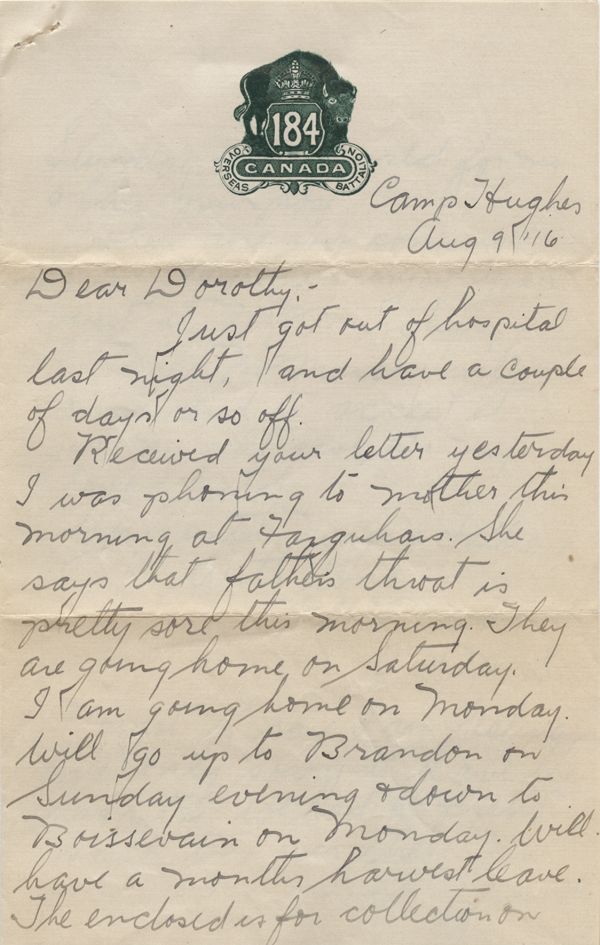 184
OVERSEAS CANADA BATTALION
Camp Hughes
Aug 9/'16
Dear Dorothy,-
Just got out of hospital
last night, and have a couple
of days or so off.
Received your letter yesterday
I was phoning to mother this
morning at Farquhars. She
says that fathers throat is
pretty sore this morning. They
are going home on Saturday.
I am going home on Monday.
Will go up to Brandon on
Sunday evening & down to
Boissevain on Monday. Will
have a months harvest leave.
The enclosed is for collection on